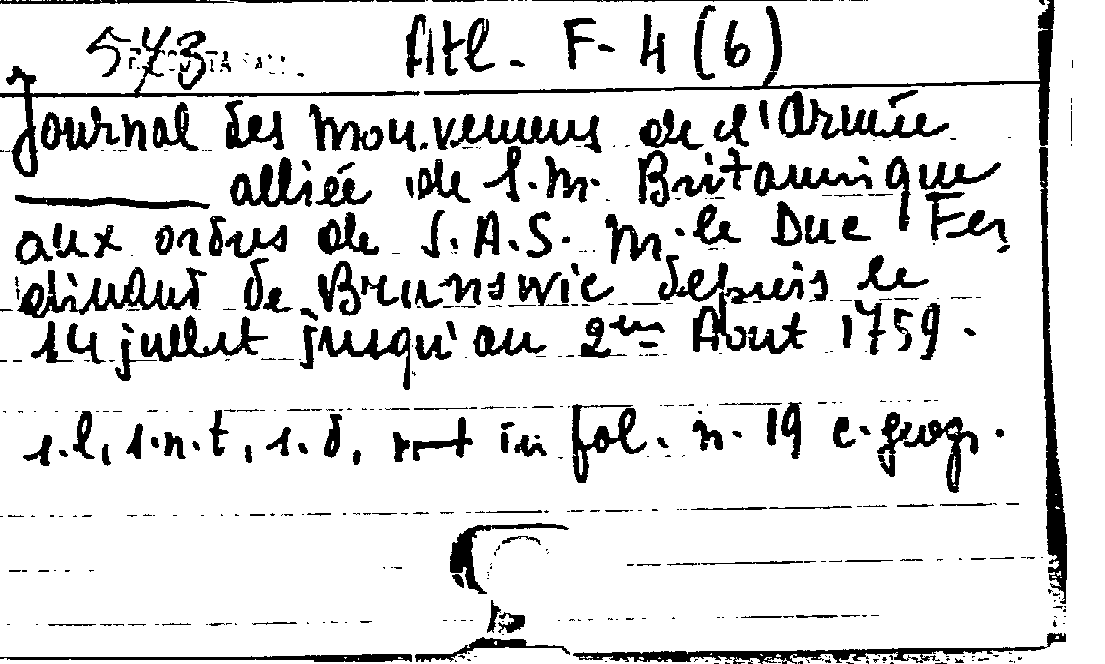 543 Atl. F-4 (6)
Journal des mouvemens de l'Armée
alliée de S.M. Britannique
aux ordres de S.A.S. M. le Duc Fer
dinand de Brunswic depuis le
14 juillet jusqu'au 2me Aout 1759.
s.l, s.n.t, s.d, in fol. n. 19 c. geogr.